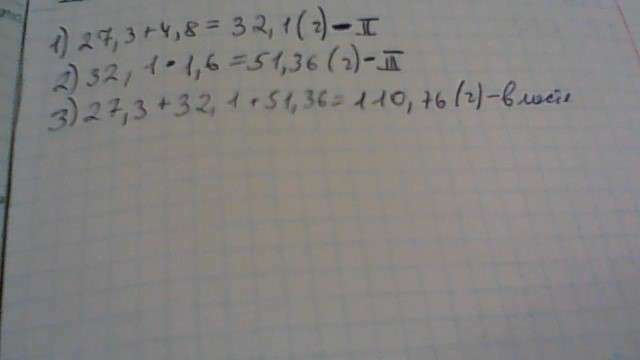 1) 27,3+4,8=32,1(г)-II
2) 32,1•1,6=51,36(г)-III
3) 27,3+32,1+51,36=110,76(г)-